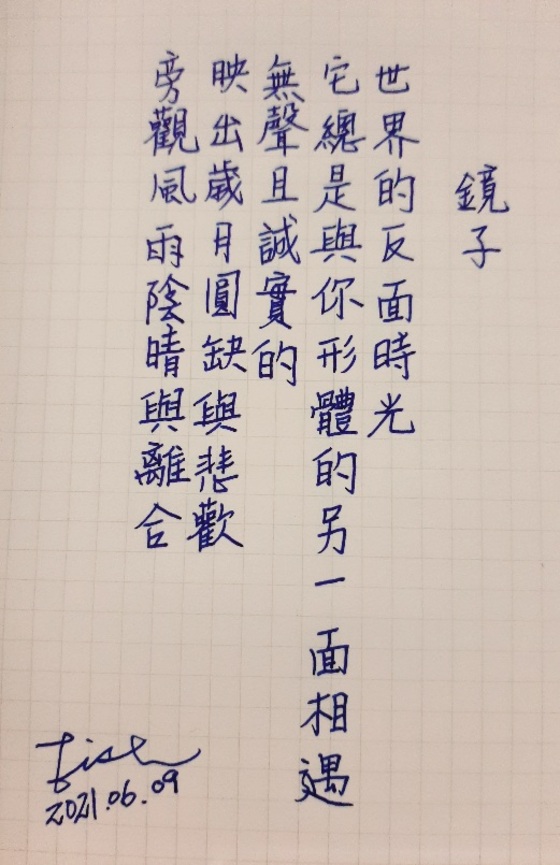 鏡子
世界的反面時光
它總是與你形體的另一面相遇
無聲且誠實的
映出歲月圓缺與悲歡
旁觀風雨陰晴與離合
2021.06.09